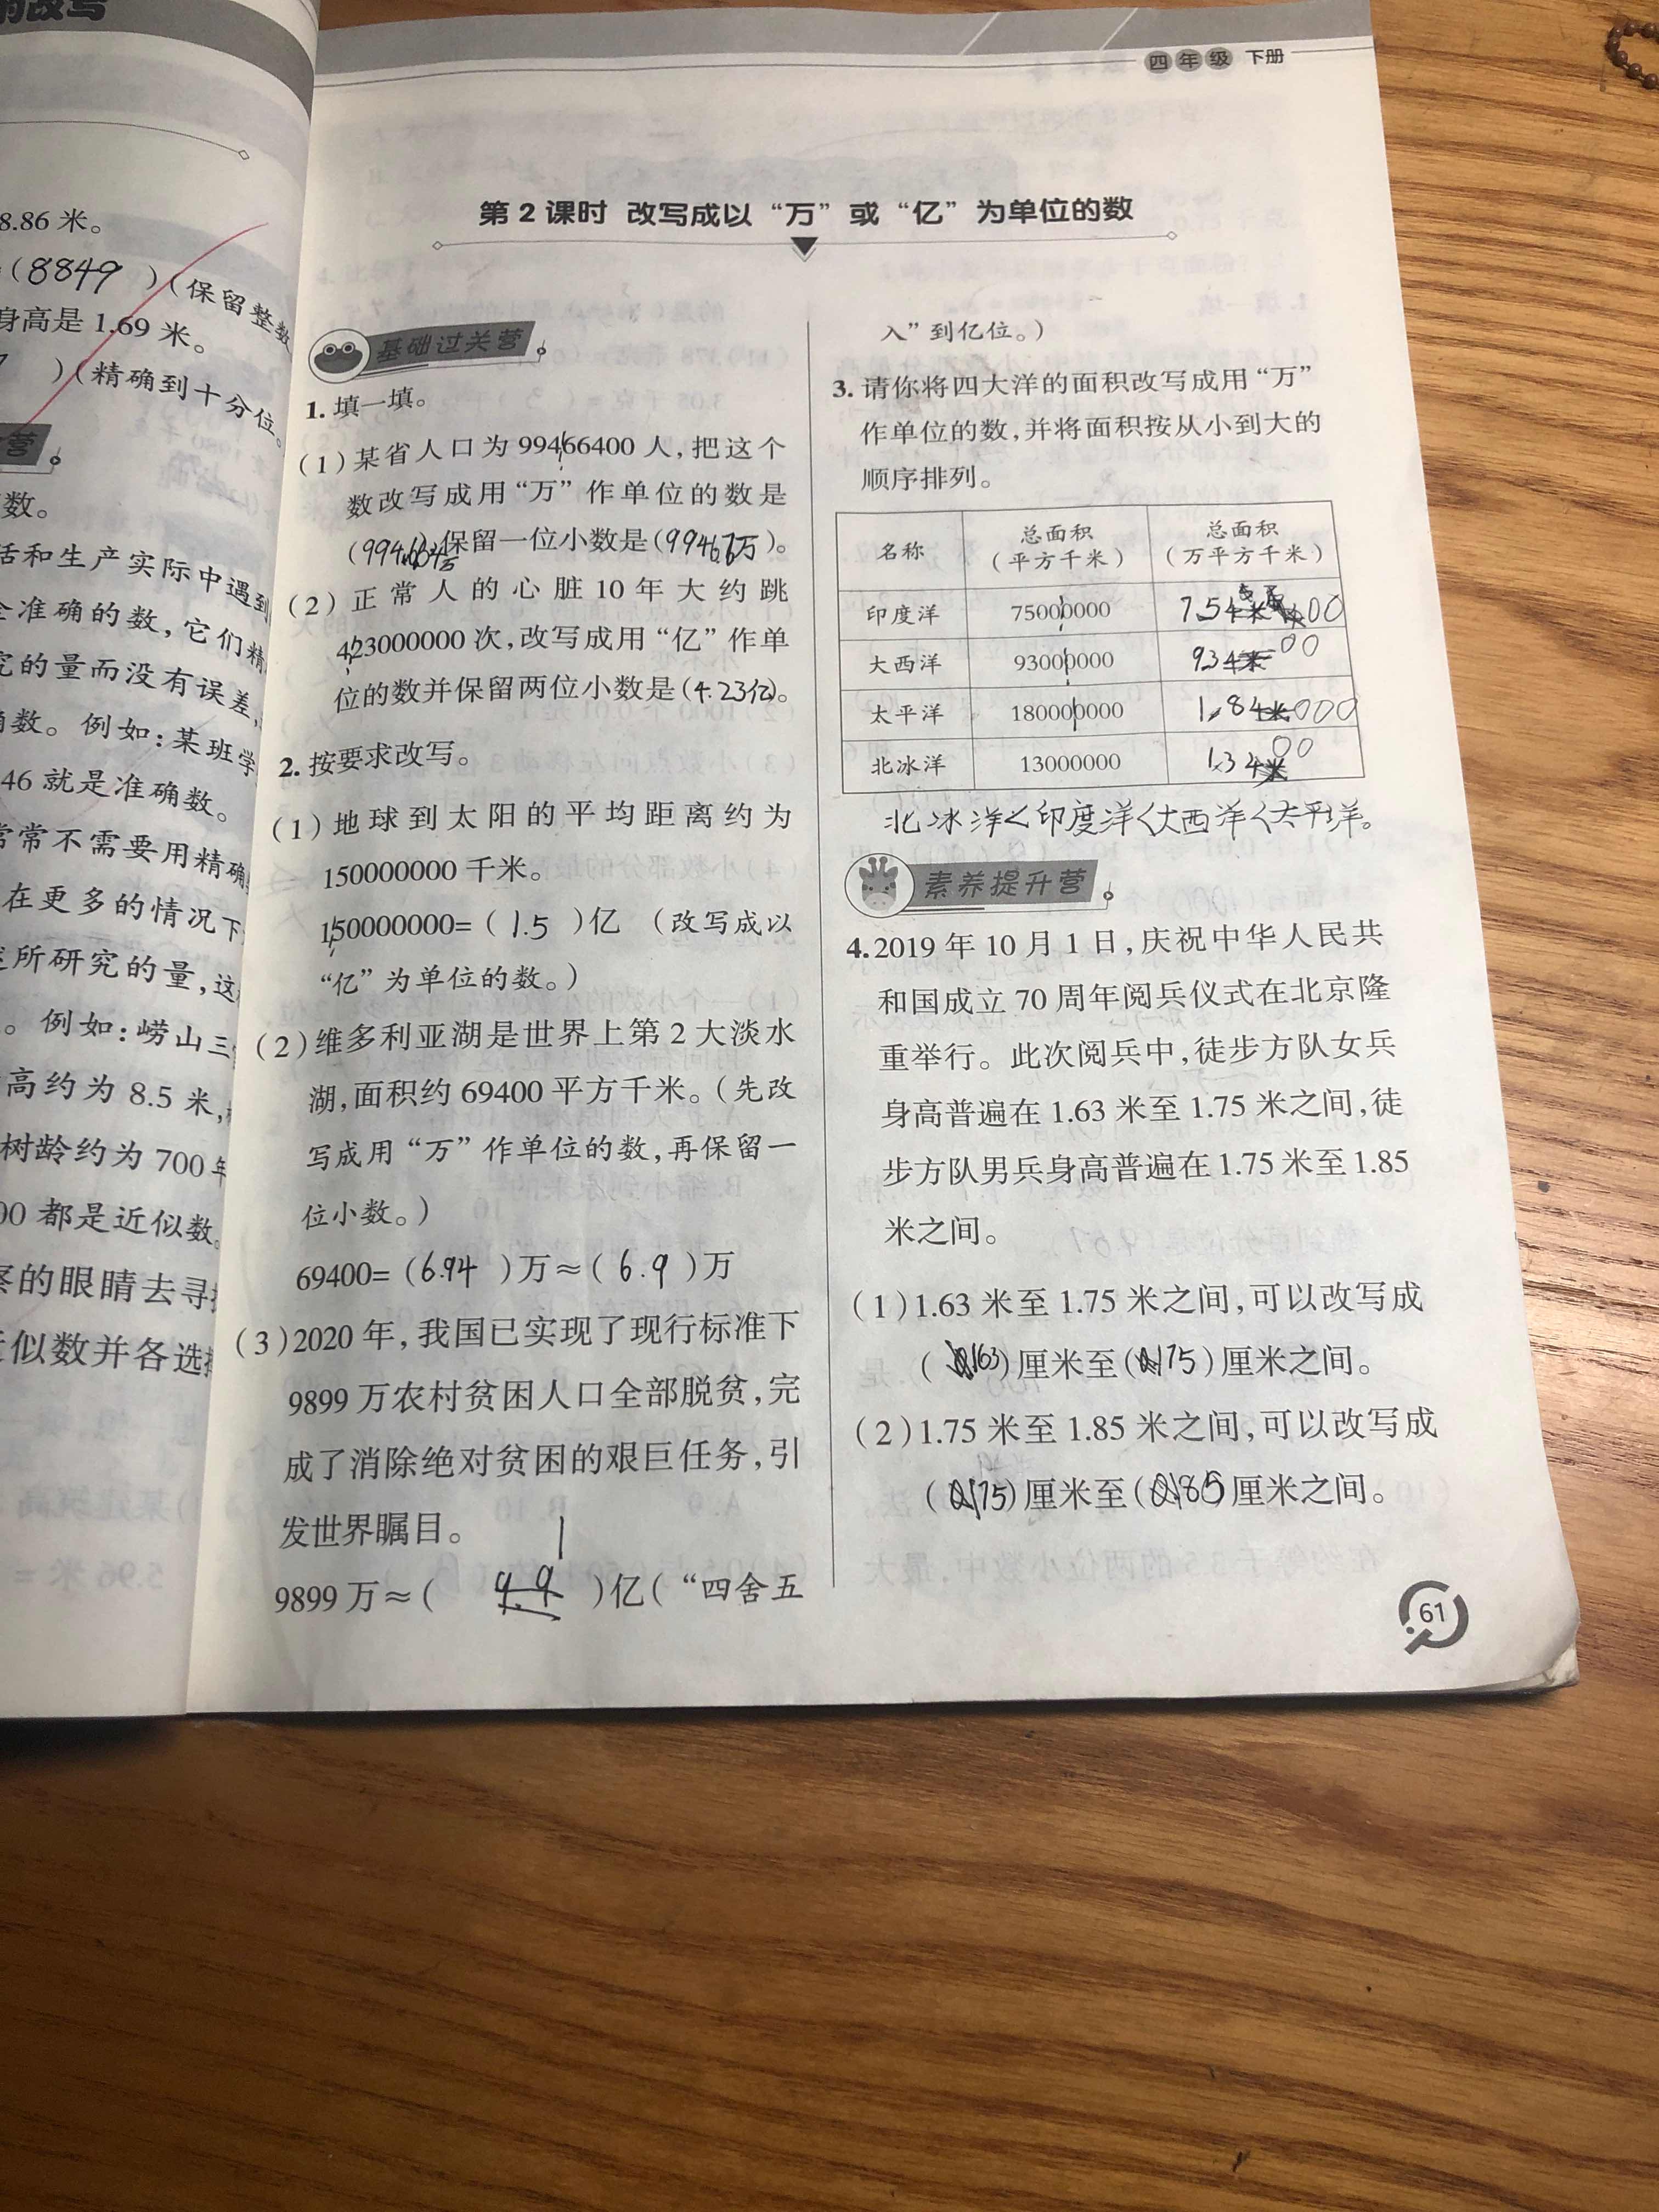 的改写
8.86 米。
(8849 )(保留整数
身高是 1.69 米。
)(精确到十分位。
营
数。
活和生产实际中遇到
全准确的数,它们精
究的量而没有误差,
确数。例如:某班学
46 就是准确数。
常常不需要用精确
在更多的情况下
所研究的量,这
。例如:崂山三
高约为 8.5 米,
树龄约为 700 年
00 都是近似数。
察的眼睛去寻找
近似数并各选择
四年级 下册
第 2 课时 改写成以“万”或“亿”为单位的数
基础过关营
1. 填一填。
(1)某省人口为 99466400 人,把这个
数改写成用“万”作单位的数是
保留一位小数是(9946.6万)。
(2)正常人的心脏 10 年大约跳
423000000 次,改写成用“亿”作单
位的数并保留两位小数是(4.23亿)。
2. 按要求改写。
(1)地球到太阳的平均距离约为
150000000 千米。
150000000=( 1.5 )亿 (改写成以
“亿”为单位的数。)
(2)维多利亚湖是世界上第 2 大淡水
湖,面积约 69400 平方千米。(先改
写成用“万”作单位的数,再保留一
位小数。)
69400=(6.94 )万≈( 6.9 )万
(3)2020 年,我国已实现了现行标准下
9899 万农村贫困人口全部脱贫,完
成了消除绝对贫困的艰巨任务,引
发世界瞩目。
1
9899 万≈( )亿(“四舍五
入”到亿位。)
3. 请你将四大洋的面积改写成用“万”
作单位的数,并将面积按从小到大的
顺序排列。
名称 总面积(平方千米) 总面积(万平方千米)
印度洋 75000000 7500
大西洋 93000000 9300
太平洋 180000000 18000
北冰洋 13000000 1300
北冰洋<印度洋<大西洋<太平洋。
素养提升营
4. 2019 年 10 月 1 日,庆祝中华人民共
和国成立 70 周年阅兵仪式在北京隆
重举行。此次阅兵中,徒步方队女兵
身高普遍在 1.63 米至 1.75 米之间,徒
步方队男兵身高普遍在 1.75 米至 1.85
米之间。
(1)1.63 米至 1.75 米之间,可以改写成
(163)厘米至(175)厘米之间。
(2)1.75 米至 1.85 米之间,可以改写成
(175)厘米至(185)厘米之间。
61